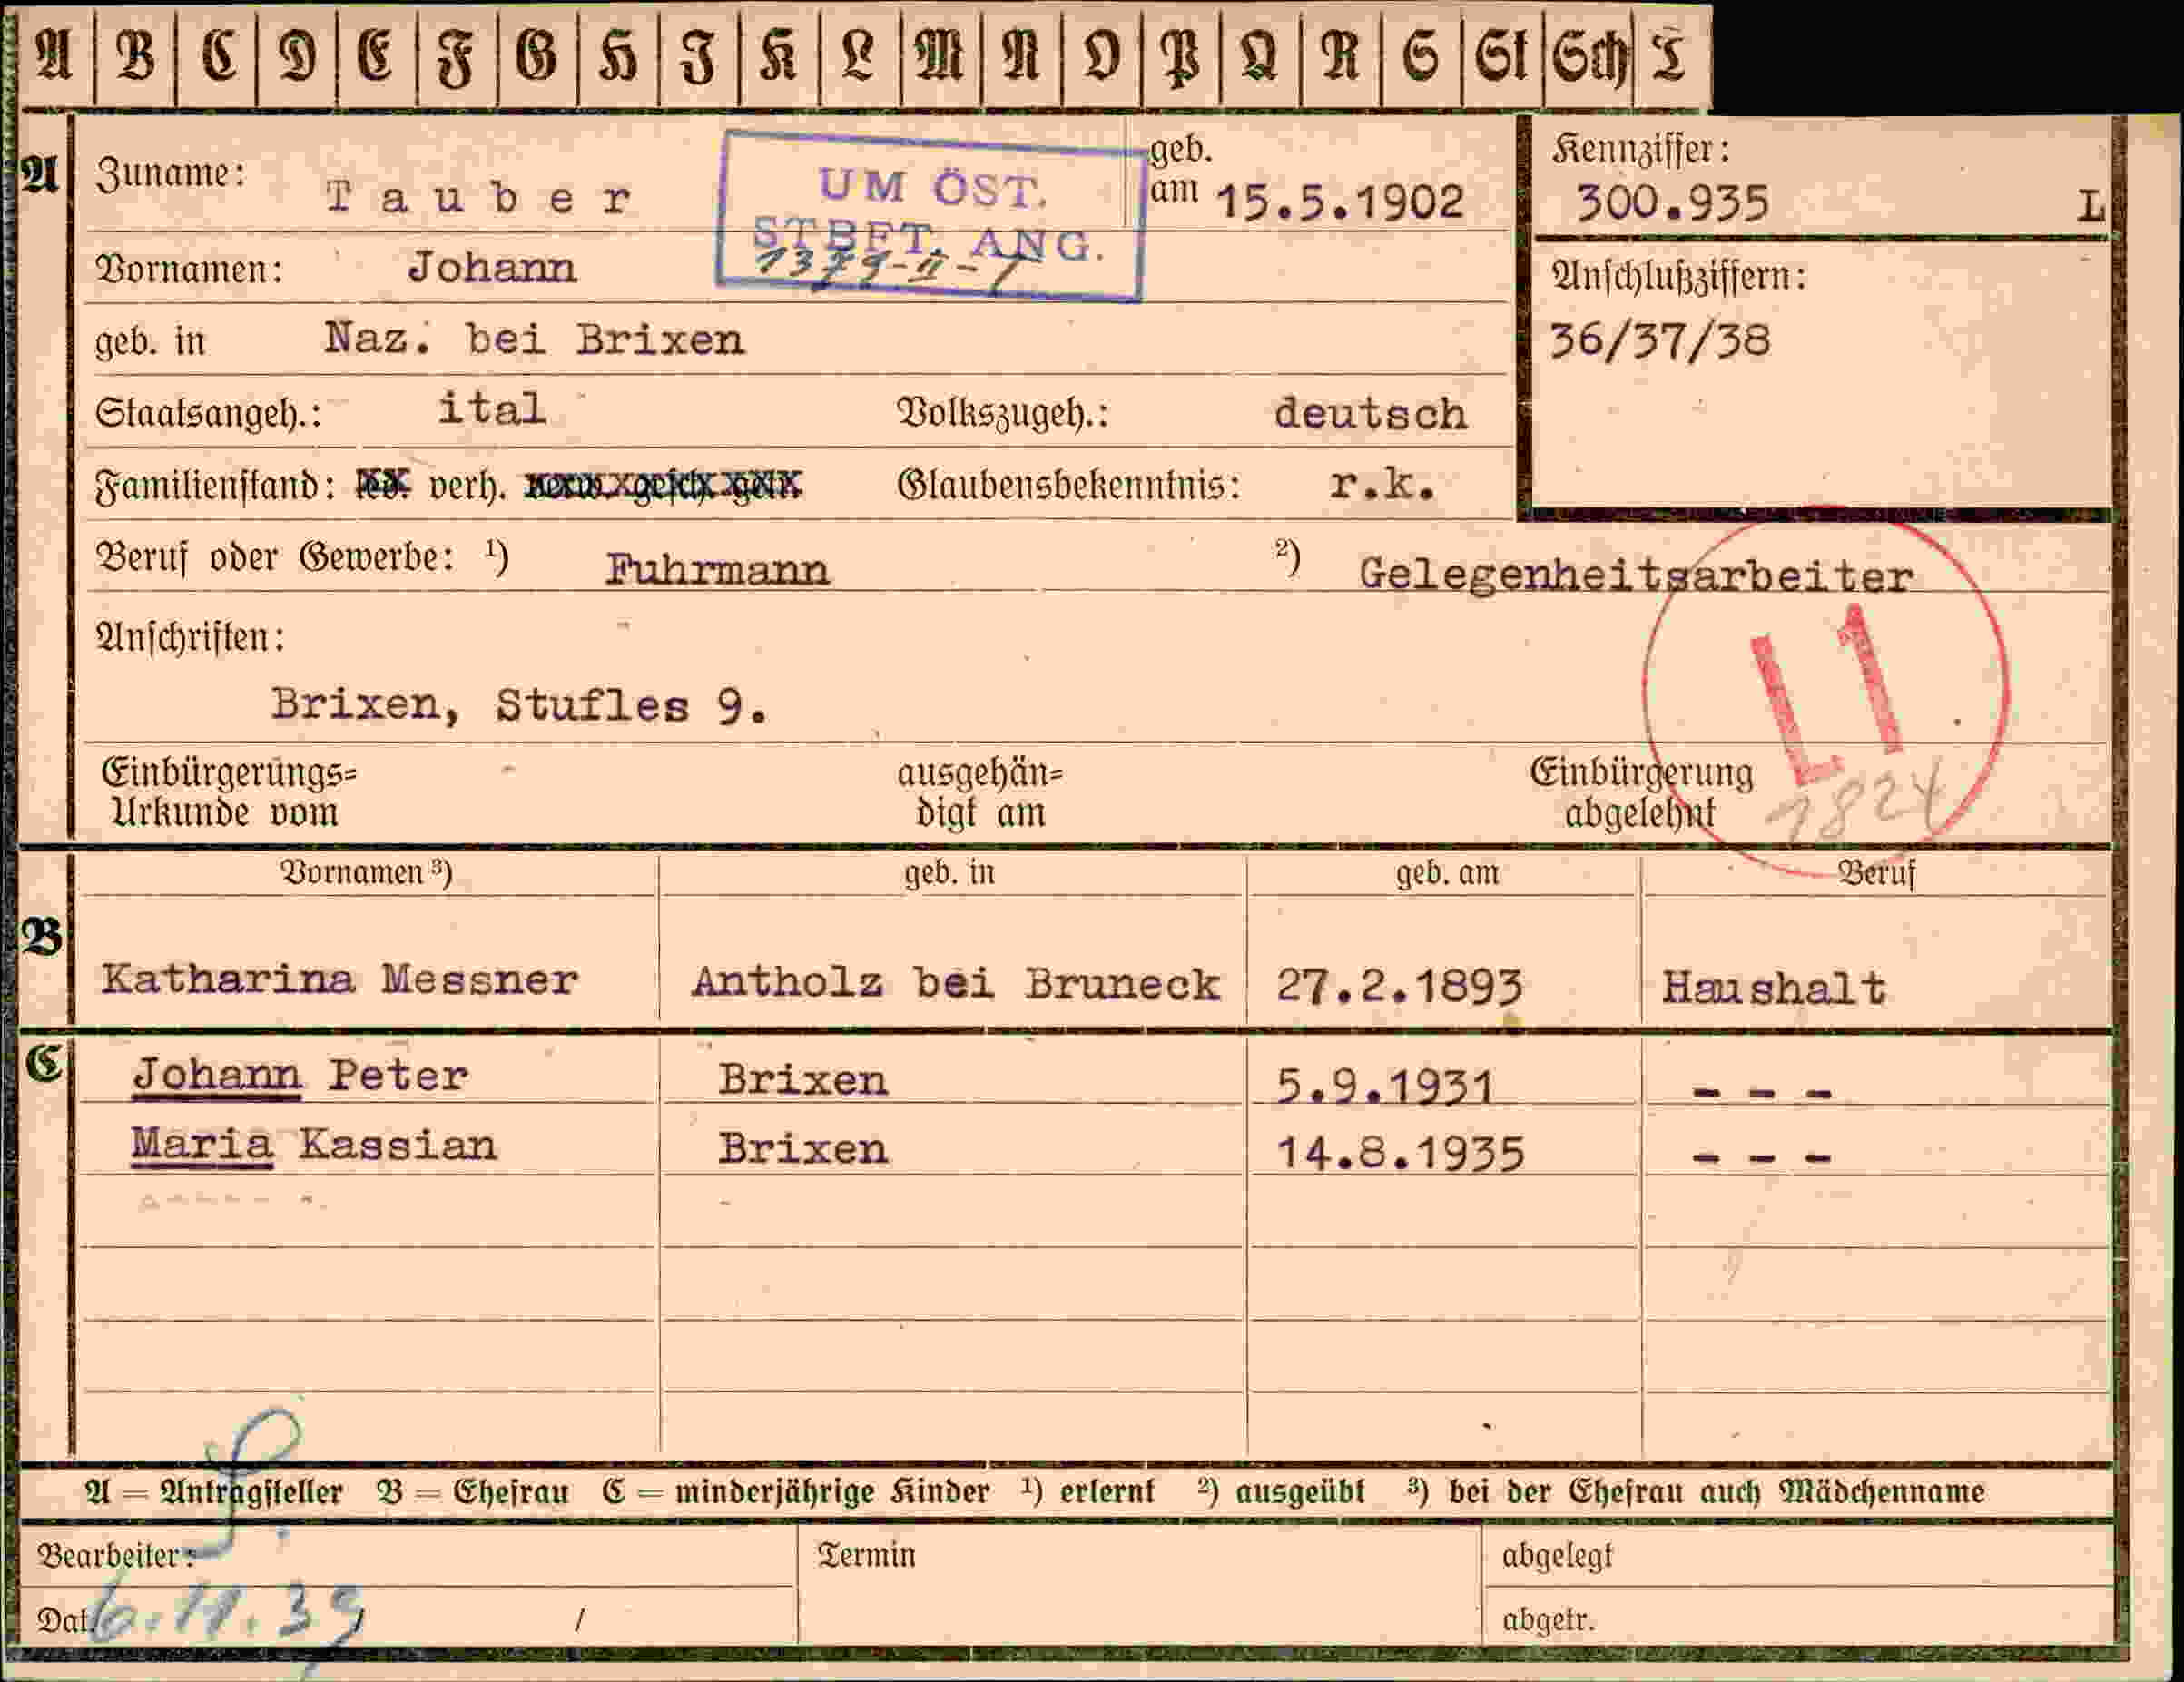 A B C D E F G H I K L M N O P Q R S St Sch T
A Zuname: Tauber geb. am 15.5.1902
UM ÖST.
STBFT. ANG.
Kennziffer:
300.935 L
Vornamen: Johann
Anschlußziffern:
36/37/38
geb. in Naz. bei Brixen
Staatsangeh.: ital Volkszugeh.: deutsch
Familienstand: led. verh. verw. gesch. getr. Glaubensbekenntnis: r.k.
Beruf oder Gewerbe: ¹) Fuhrmann ²) Gelegenheitsarbeiter
Anschriften:
L1
Brixen, Stufles 9.
Einbürgerungs= ausgehän= Einbürgerung
Urkunde vom digt am abgelehnt
1824
Vornamen ³) geb. in geb. am Beruf
B
Katharina Messner Antholz bei Bruneck 27.2.1893 Haushalt
C
Johann Peter Brixen 5.9.1931 - - -
Maria Kassian Brixen 14.8.1935 - - -
A = Antragsteller B = Ehefrau C = minderjährige Kinder ¹) erlernt ²) ausgeübt ³) bei der Ehefrau auch Mädchenname
Bearbeiter: Termin abgelegt
Dat. 6.11.39 / / abgetr.